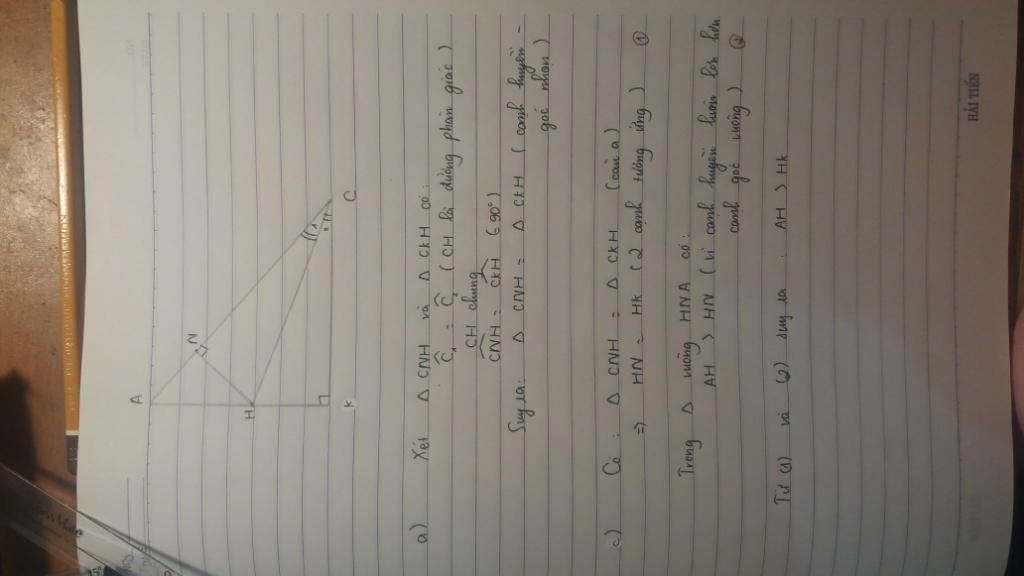 A
N
H
K
C
a) Xét Δ CNH và Δ CKH có:
Ĉ₁ = Ĉ₂ ( CH là đường phân giác )
CH chung
CNH = CKH (90°)
Suy ra: Δ CNH = Δ CKH ( cạnh huyền -
góc nhọn )
c) Có : Δ CNH = Δ CKH ( câu a )
=> HN = HK ( 2 cạnh tương ứng ) ①
Trong Δ vuông HNA có:
AH > HN ( vì cạnh huyền luôn lớn hơn
cạnh góc vuông ) ②
Từ (1) và (2) suy ra : AH > HK
HẢI TIẾN